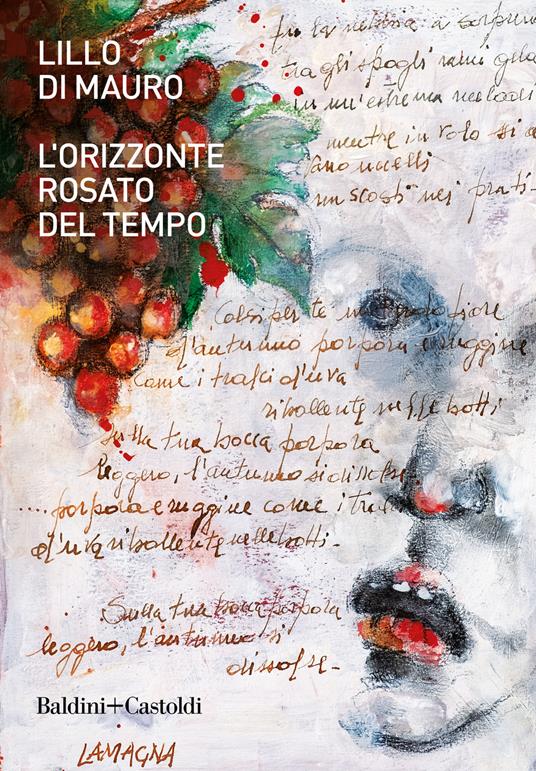 LILLO
DI MAURO
L'ORIZZONTE
ROSATO
DEL TEMPO
tra gli spogli rami
in un'estrema
mentre in volo si
uccelli
nei prati
Colsi per te fiore
d'autunno porpora e ruggine
come i tralci d'uva
ribollente nelle botti
sulla tua bocca porpora
leggero, l'autunno si dissolse
.... porpora e ruggine come i
d'uva ribollente nelle botti
Sulla tua bocca porpora
leggero, l'autunno si
dissolse
Baldini+Castoldi
LAMAGNA